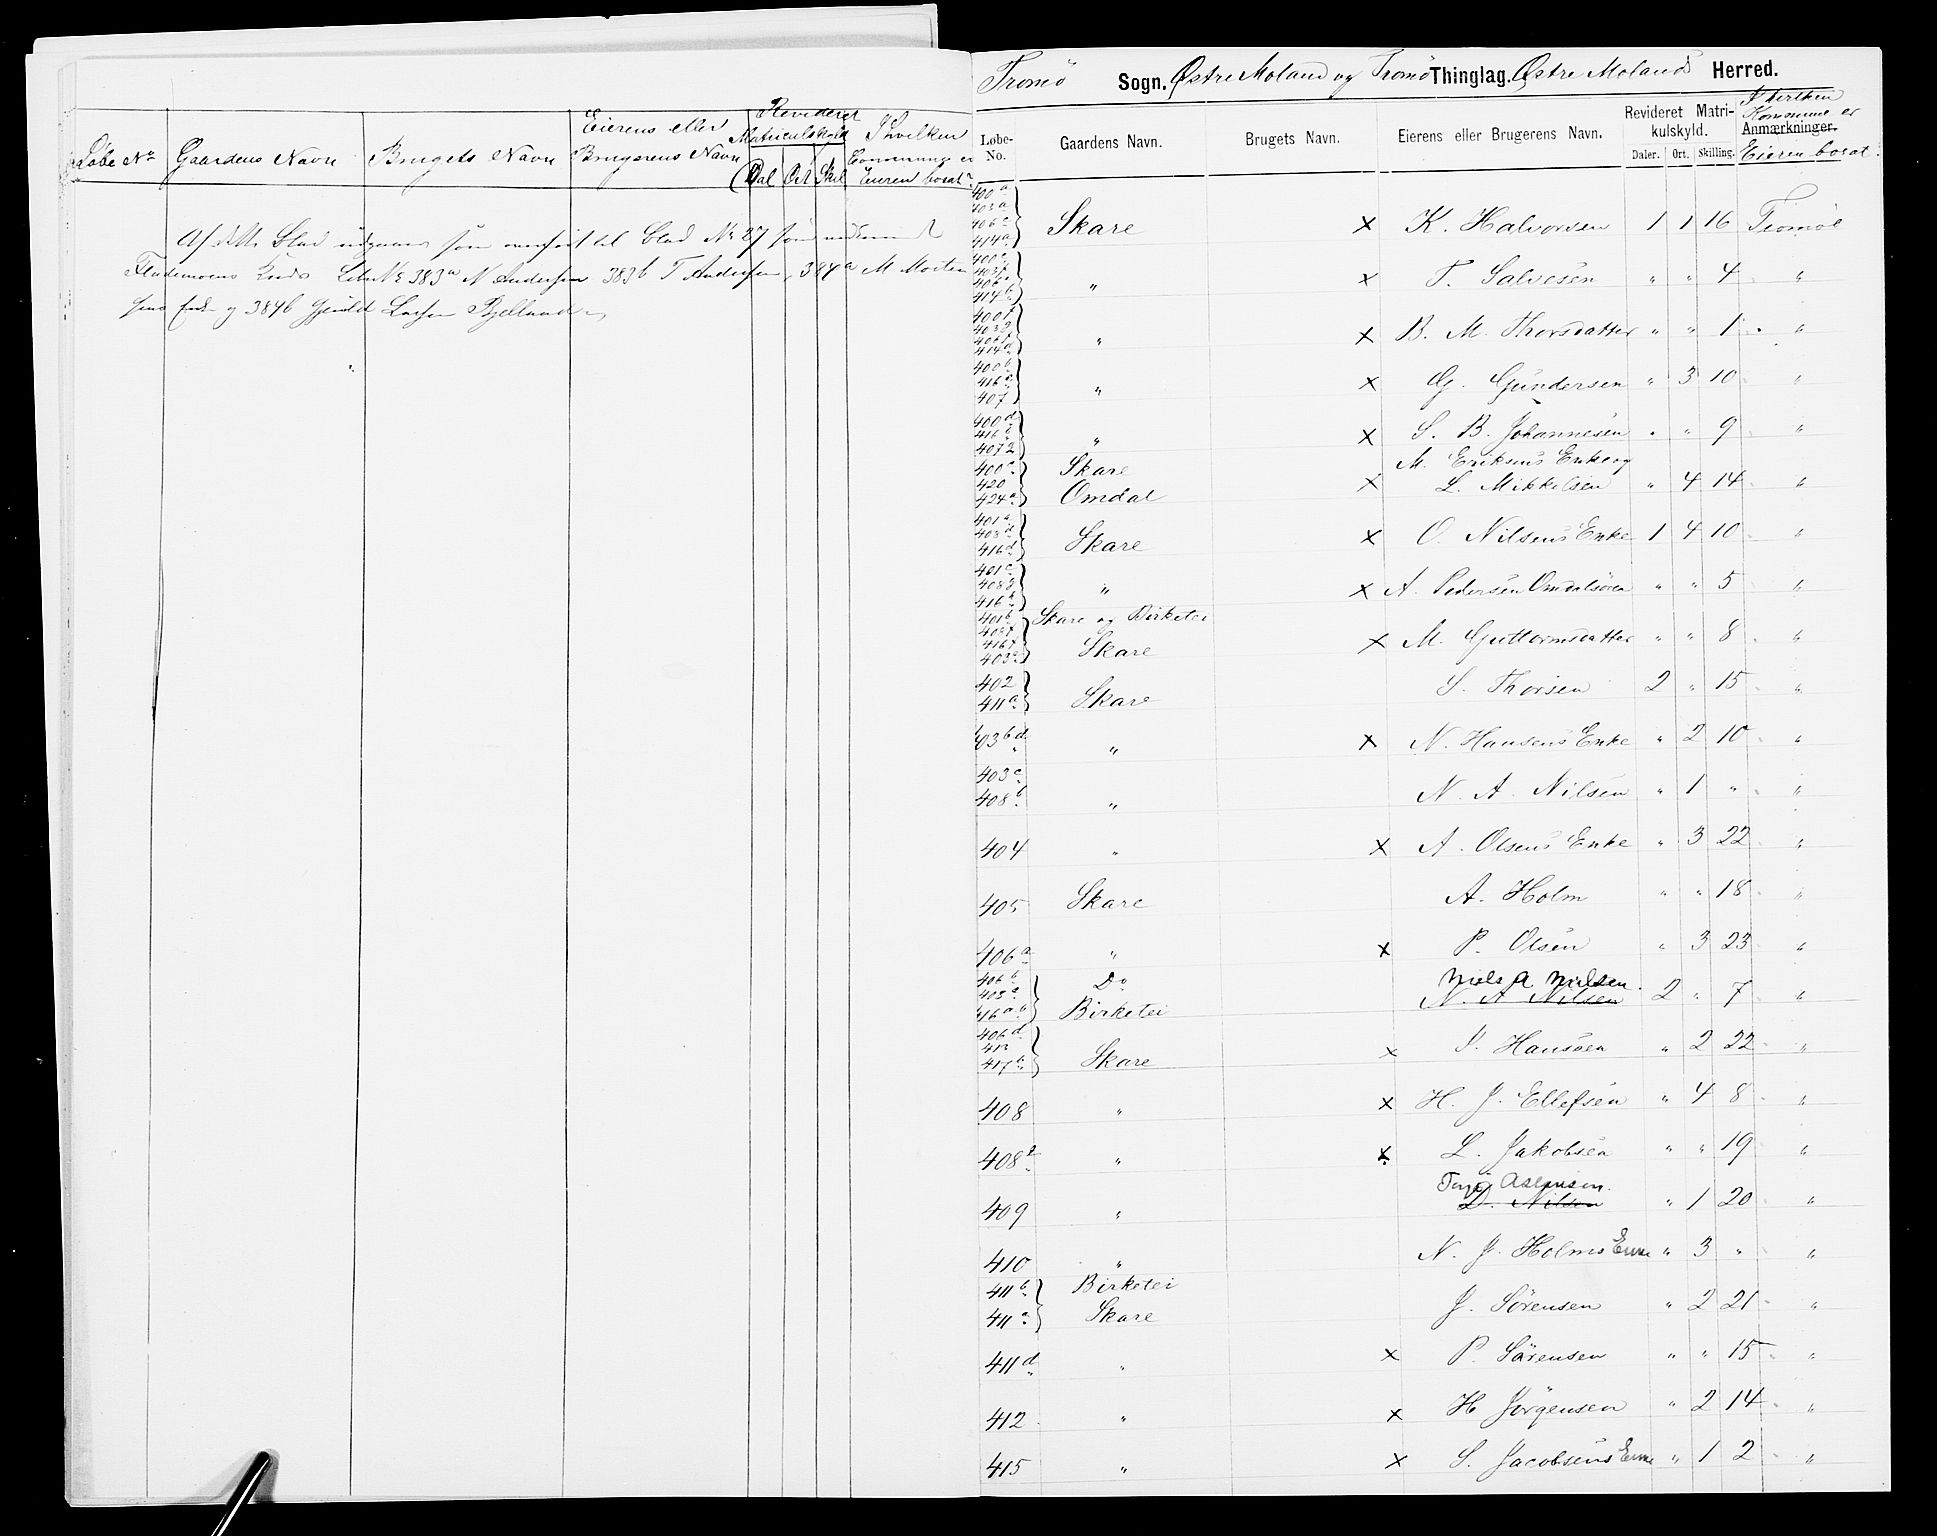 Løbe No Gaardens Navn Brugets Navn Eierens eller Brugerens Navn Revideret Matriculskyld Dal Ort Skil I hvilken Commune er Eieren bosat
Af dette Blad udgaaer som overført til Blad No 27
383a N Andersen 383b T Andersen, 384a M Morten
sens Enke og 384b Lassen Bjelland
Tromø Sogn. Østre Moland og Tromø Thinglag. Østre Molands Herred.
Løbe-No. Gaardens Navn. Brugets Navn. Eierens eller Brugerens Navn. Revideret Matrikulskyld. Daler. Ort. Skilling. Anmærkninger. I hvilken Kommune er Eieren bosat.
400a 403a 406c 414a Skare × K. Halvorsen 1 1 16 Tromøe
" × T. Salvesen " " 4 "
414d " × B. M. Thorsdatter " " 1 "
400b 416c 407 " × G. Gundersen " 3 10 "
400d 416 407 2 " × S. B. Johannesen " " 9 "
400e 420 424a Skare Omdal × M. Eriksens Enke og L. Mikkelsen " 4 14 "
401a 403d 416d Skare × O. Nilsens Enke 1 4 10 "
401c 408 416 " × A. Pedersen Omdalsøren " " 5 "
401b 403 416f 403 Skare og Birketei Skare × M. Guttormsdatter " " 8 "
402 411a Skare S. Thorsen 2 " 15 "
403b d " × N. Hansens Enke " 2 10 "
403c 408b " N. A. Nilsen " 1 " "
404 " × A. Olsens Enke " 3 22 "
405 Skare A. Holm " " 18 "
406a " × P. Olsen " 3 23 "
406b 403 416a b Do Birketei Niels A Nielsen. N. A Nilsen 2 " 7 "
406d 413 417b Skare × Hansen " 2 22 "
408 " × H. J. Ellefsen " 4 8 "
408 " × L. Jakobsen " " 19 "
409 " D. Nilsen " 1 20 "
410 " N. J. Holms Enke " 3 " "
411b 411 Birketei Skare J. Sørensen " 2 21 "
411d " × P. Sørensen " " 15 "
412 " × H Jørgensen " 2 14 "
415 " × S. Jacobsens Enke " 1 2 "